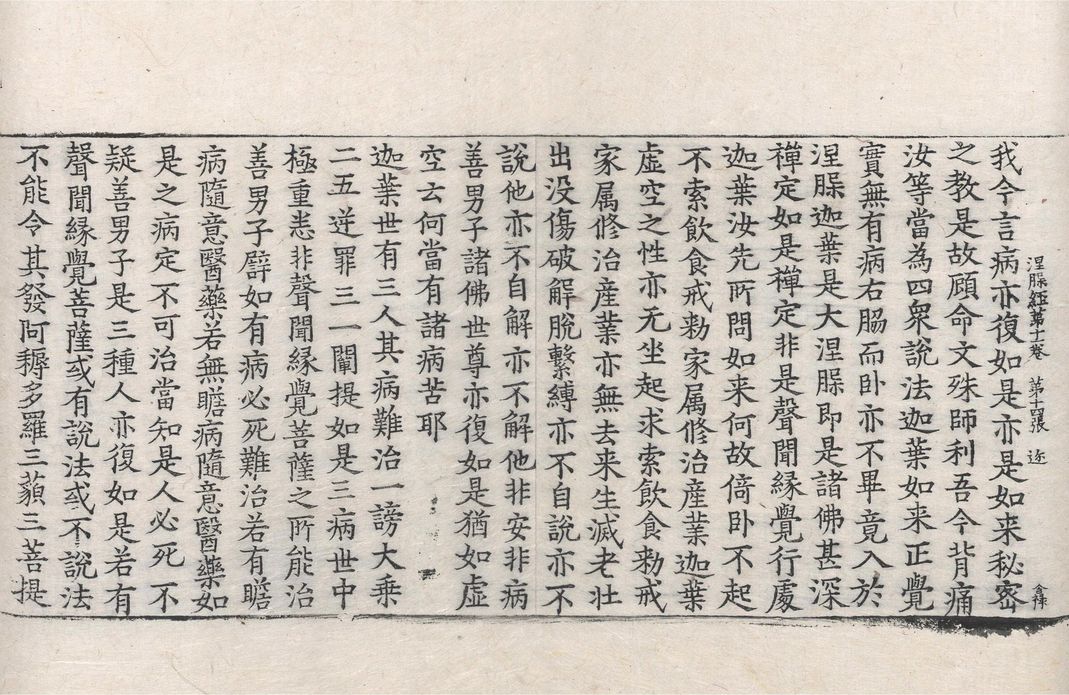 涅槃經第十一卷　第十四張　逐　金祿
我今言病亦復如是亦是如来秘密
之教是故顧命文殊師利吾今背痛
汝等當為四衆說法迦葉如来正覺
實無有病右脇而卧亦不畢竟入於
涅槃迦葉是大涅槃即是諸佛甚深
禪定如是禪定非是聲聞縁覺行處
迦葉汝先所問如来何故倚卧不起
不索飲食戒勑家属修治産業迦葉
虛空之性亦无坐起求索飲食勑戒
家属修治産業亦無去来生滅老壮
出没傷破解脫繫縛亦不自說亦不
說他亦不自解亦不解他非安非病
善男子諸佛世尊亦復如是猶如虛
空云何當有諸病苦耶
迦葉世有三人其病難治一謗大乗
二五逆罪三一闡提如是三病世中
極重悉非聲聞縁覺菩薩之所能治
善男子辟如有病必死難治若有瞻
病隨意醫藥若無瞻病隨意醫藥如
是之病定不可治當知是人必死不
疑善男子是三種人亦復如是若有
聲聞縁覺菩薩或有說法或不說法
不能令其發阿耨多羅三藐三菩提